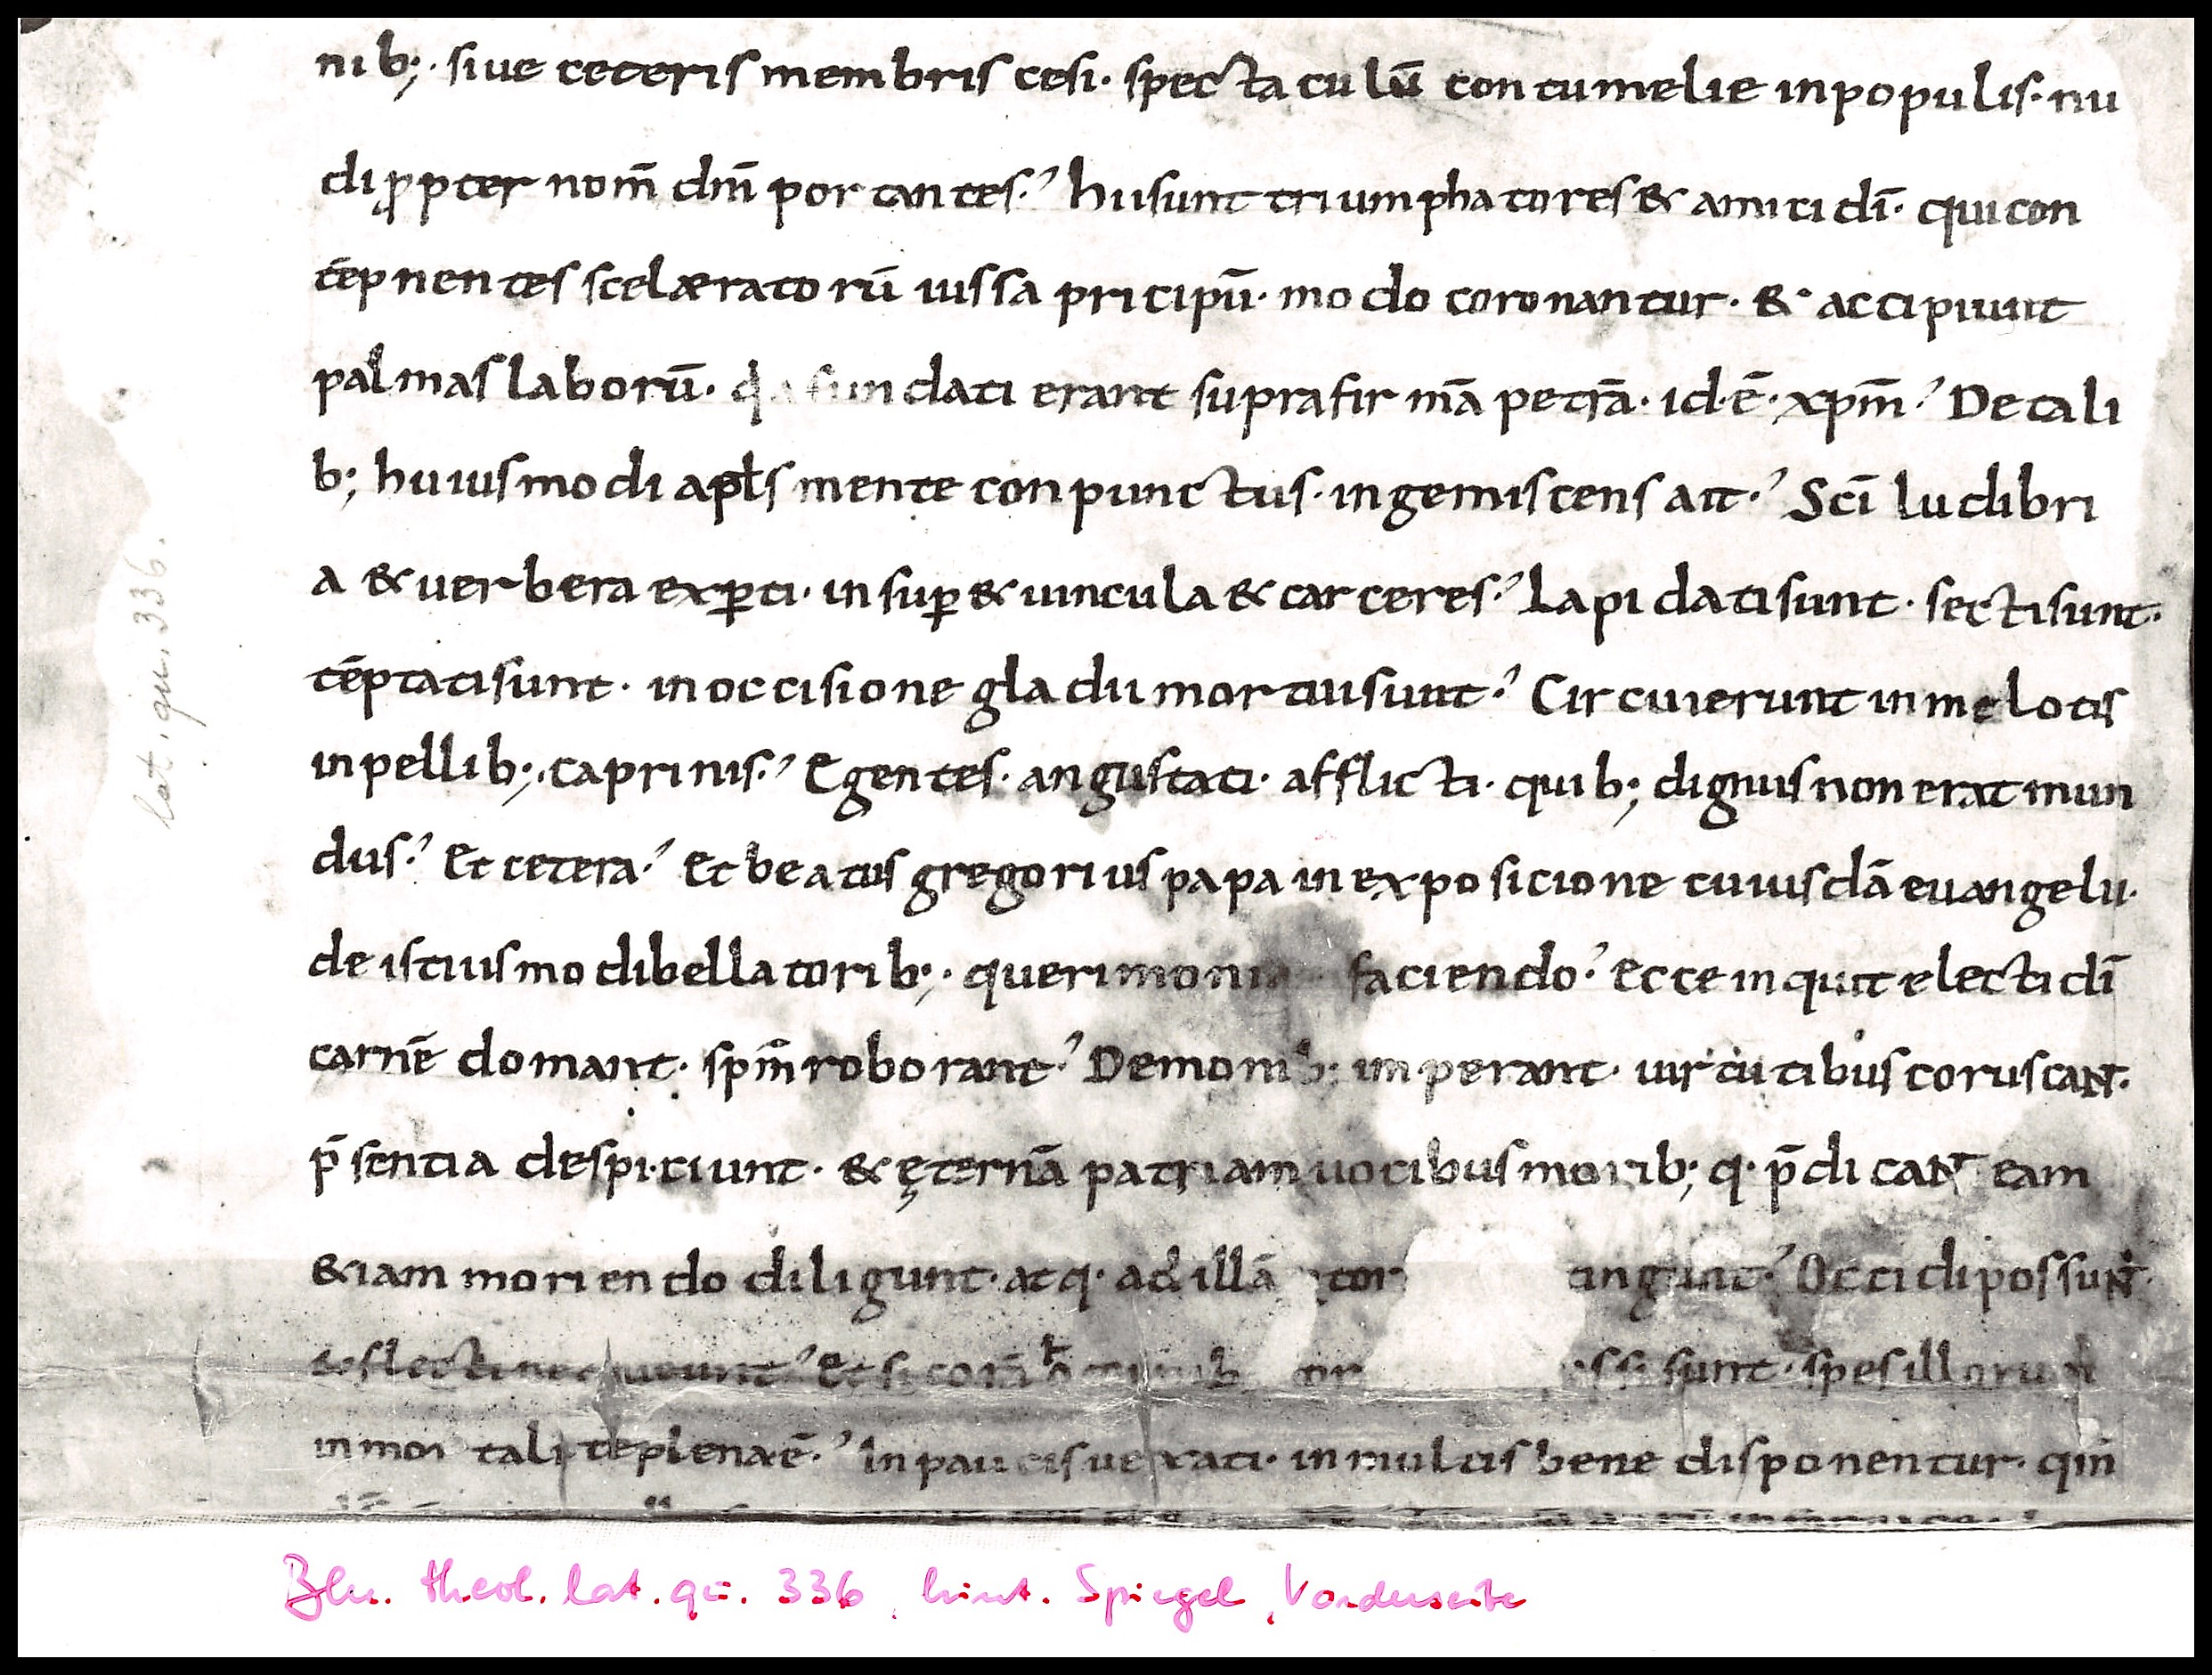 nib; · siue ceteris membris cesi · spectaculū contumelie inpopulis · nu
di ꝓpter nom̄ dm̄ portantes · hii sunt triumphatores & amici dī · qui con
tēpnentes scelæratorū iussa pricipū · modo coronantur · & accipiunt
palmas laborū · fundati erant supra firmā petrā · id · ē · xpm̄ · De tali
b; huiusmodi apłs mente conpunctus · ingemiscens ait · Scī ludibri
a & uerbera exꝑti · insuꝑ & uincula & carceres · Lapidati sunt · secti sunt ·
tēptati sunt · in occisione gladii mortui sunt · Circuierunt in melotis
in pellib; · caprinis · Egentes · angustati · afflicti · quib; dignus non erat mun
dus · Et cetera · Et beatus gregorius papa in exposicione cuiusdā euangelii ·
de istiusmodi bellatorib; · querimonia faciendo · Ecce inquit electi dī
carnē domant · spm̄ roborant · Demonib; imperant · uirtutibus coruscant ·
p̄sentia despiciunt · & ęternā patriam uocibus morib; q · p̄dicant eam
& iam moriendo diligunt · atq · ad illā tor angunt · Occidi possunt ·
flecti nequeunt · Et si corā tor essi sunt · spes illorum
inmortalitate plena ē · In paucis uexati · in multis bene disponentur · qm̄
lat. qu. 336.
Bln. theol. lat. qu. 336, hint. Spiegel, Vorderseite